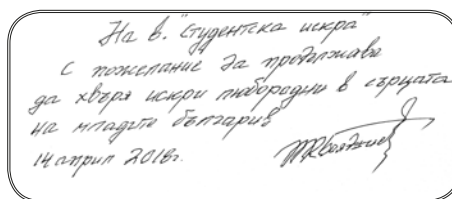 На в. "Студентска искра"
С пожелание да продължава
да хвърля искри любородни в сърцата
на младите българи
14 април 2018г.